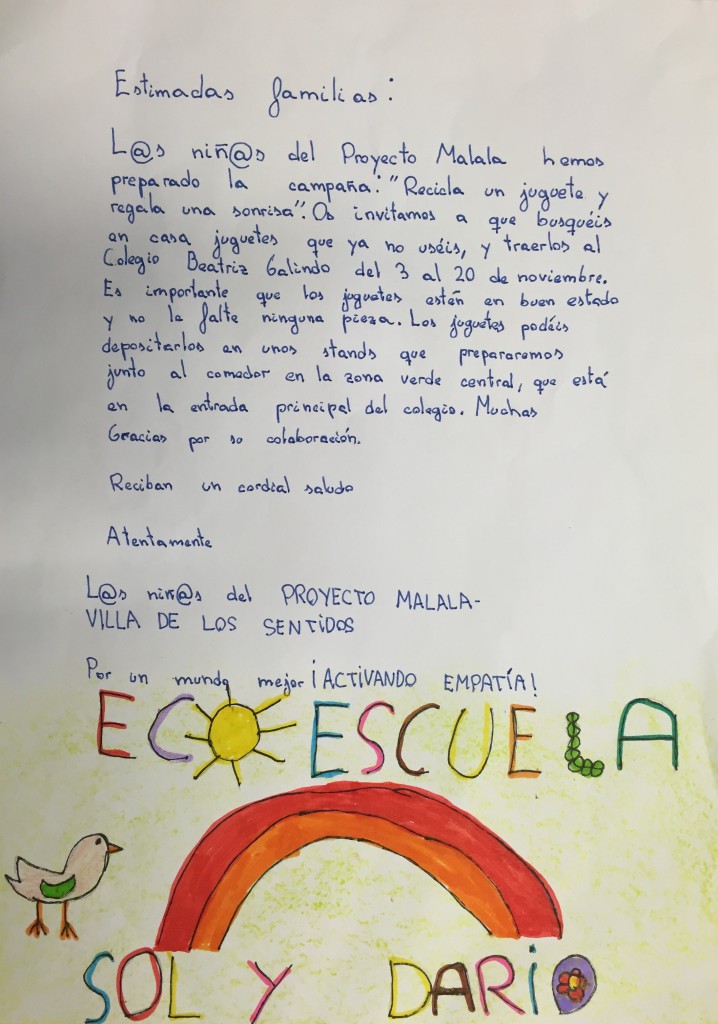 Estimadas familias:
L@s niñ@s del Proyecto Malala hemos
preparado la campaña: "Recicla un juguete y
regala una sonrisa". Os invitamos a que busquéis
en casa juguetes que ya no uséis, y traerlos al
Colegio Beatriz Galindo del 3 al 20 de noviembre.
Es importante que los juguetes estén en buen estado
y no le falte ninguna pieza. Los juguetes podéis
depositarlos en unos stands que prepararemos
junto al comedor en la zona verde central, que está
en la entrada principal del colegio. Muchas
Gracias por su colaboración.
Reciban un cordial saludo
Atentamente
L@s niñ@s del PROYECTO MALALA-
VILLA DE LOS SENTIDOS
Por un mundo mejor ¡ACTIVANDO EMPATÍA!
ECOESCUELA
SOL Y DARiO